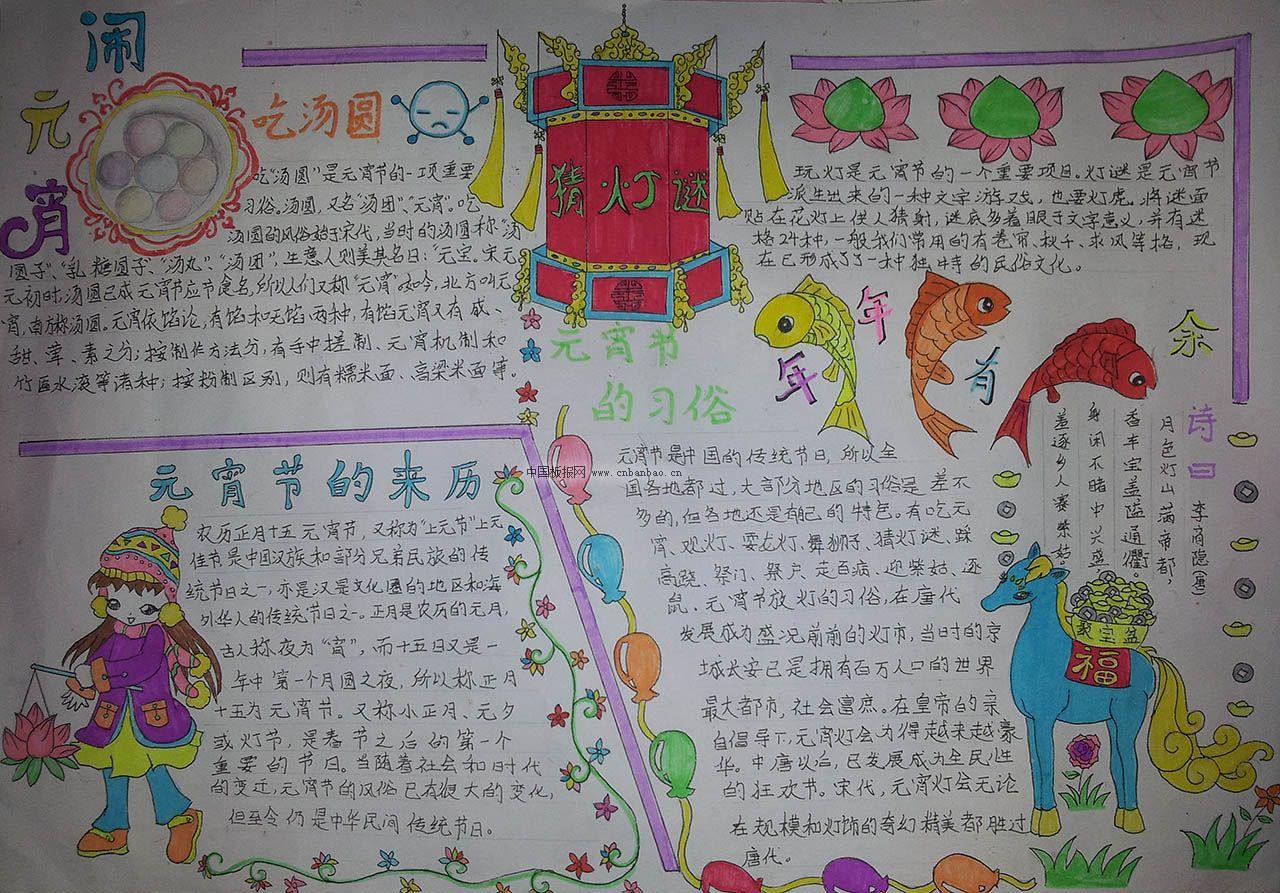 闹
元
宵
吃汤圆
吃“汤圆”是元宵节的一项重要
习俗。汤圆，又名“汤团”、“元宵”。吃
汤圆的风俗始于宋代，当时的汤圆称“汤
圆子”、“乳糖圆子”、“汤丸”、“汤团”，生意人则美其名曰：“元宝。宋元
元初时，汤圆已成元宵节应节食名，所以人们又称“元宵”。如今，北方叫元
宵，南方称汤圆。元宵依馅论，有馅和无馅两种，有馅元宵又有咸、
甜、荤、素之分；按制作方法分，有手中搓制、元宵机制和
竹匾水滚等诸种；按粉制区别，则有糯米面、高梁米面等。
猜灯谜
玩灯是元宵节的一个重要项目。灯谜是元宵节
派生出来的一种文字游戏，也要灯虎。将谜面
贴在花灯上供人猜射，谜底多着眼于文字意义，并有迷
格24种，一般我们常用的有卷帘、秋千、求凤等格，现
在已形成了了一种独特的民俗文化。
年年有余
元宵节
的习俗
元宵节是中国的传统节日，所以全
国各地都过，大部分地区的习俗是差不
多的，但各地还是有自己的特色。有吃元
宵、观灯、耍龙灯、舞狮子、猜灯谜、踩
高跷、祭门、祭户、走百病、迎紫姑、逐
鼠、元宵节放灯的习俗，在唐代
发展成为盛况前前的灯市，当时的京
城长安已是拥有百万人口的世界
最大都市，社会富庶。在皇帝的亲
自倡导下，元宵灯会为得越来越豪
华。中唐以后，已发展成为全民性
的狂欢节。宋代，元宵灯会无论
在规模和灯饰的奇幻精美都胜过
唐代。
诗曰
李商隐（唐）
月色灯山满帝都，
香车宝盖隘通衢。
身闲不睹中兴盛，
羞逐乡人赛紫姑。
聚宝盆
福
元宵节的来历
农历正月十五元宵节，又称为“上元节”上元
佳节是中国汉族和部分兄弟民族的传
统节日之一，亦是汉是文化圈的地区和海
外华人的传统节日之一。正月是农历的元月，
古人称夜为“宵”，而十五日又是一
年中第一个月圆之夜，所以称正月
十五为元宵节。又称小正月、元夕
或灯节，是春节之后的第一个
重要的节日。当随着社会和时代
的变迁，元宵节的风俗已有很大的变化，
但至今仍是中华民间传统节日。
中国板报网
www.cnbanbao.cn